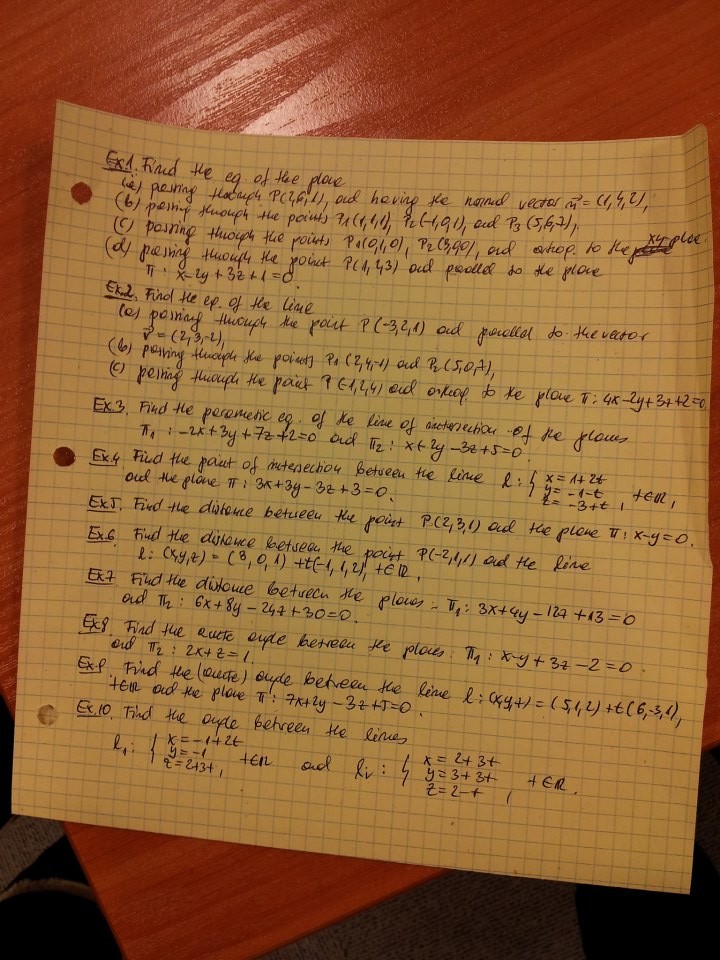 Ex.1. Find the eq. of the plane
(a) passing through P(2,6,1), and having the normal vector n⃗ = (1,4,2),
(b) passing through the points P1(1,1,1), P2(-1,0,1), and P3(5,6,7),
(c) passing through the points P1(0,1,0), P2(3,0,0), and orthog. to the xy plane.
(d) passing through the point P(1,2,3) and parallel to the plane
π: x-2y+3z+1=0.
Ex.2. Find the eq. of the line
(a) passing through the point P(-3,2,1) and parallel to the vector
v⃗=(2,3,-2),
(b) passing through the points P1(2,4,-1) and P2(5,0,7),
(c) passing through the point P(-1,2,4) and orthog. to the plane π: 4x-2y+3z+2=0.
Ex.3. Find the parametric eq. of the line of intersection of the planes
π1: -2x+3y+7z+2=0 and π2: x+2y-3z+5=0.
Ex.4 Find the point of intersection between the line l: { x=1+2t
y=-1-t
z=-3+t, t∈ℝ,
and the plane π: 3x+3y-3z+3=0.
Ex.5. Find the distance between the point P(2,3,1) and the plane π: x-y=0.
Ex.6 Find the distance between the point P(-2,1,1) and the line
l: (x,y,z) = (3,0,1)+t(-1,1,2), t∈ℝ.
Ex.7 Find the distance between the planes π1: 3x+4y-12z+13=0
and π2: 6x+8y-24z+30=0.
Ex.8 Find the acute angle between the planes: π1: x-y+3z-2=0
and π2: 2x+z=1.
Ex.9. Find the (acute) angle between the line l: (x,y,z) = (5,1,2)+t(6,-3,1),
t∈ℝ and the plane π: 7x+2y-3z+5=0.
Ex.10. Find the angle between the lines
l1: { x=-1+2t
y=-1
z=2+3t, t∈ℝ and l2: { x=2+3t
y=3+3t
z=2-t, t∈ℝ.